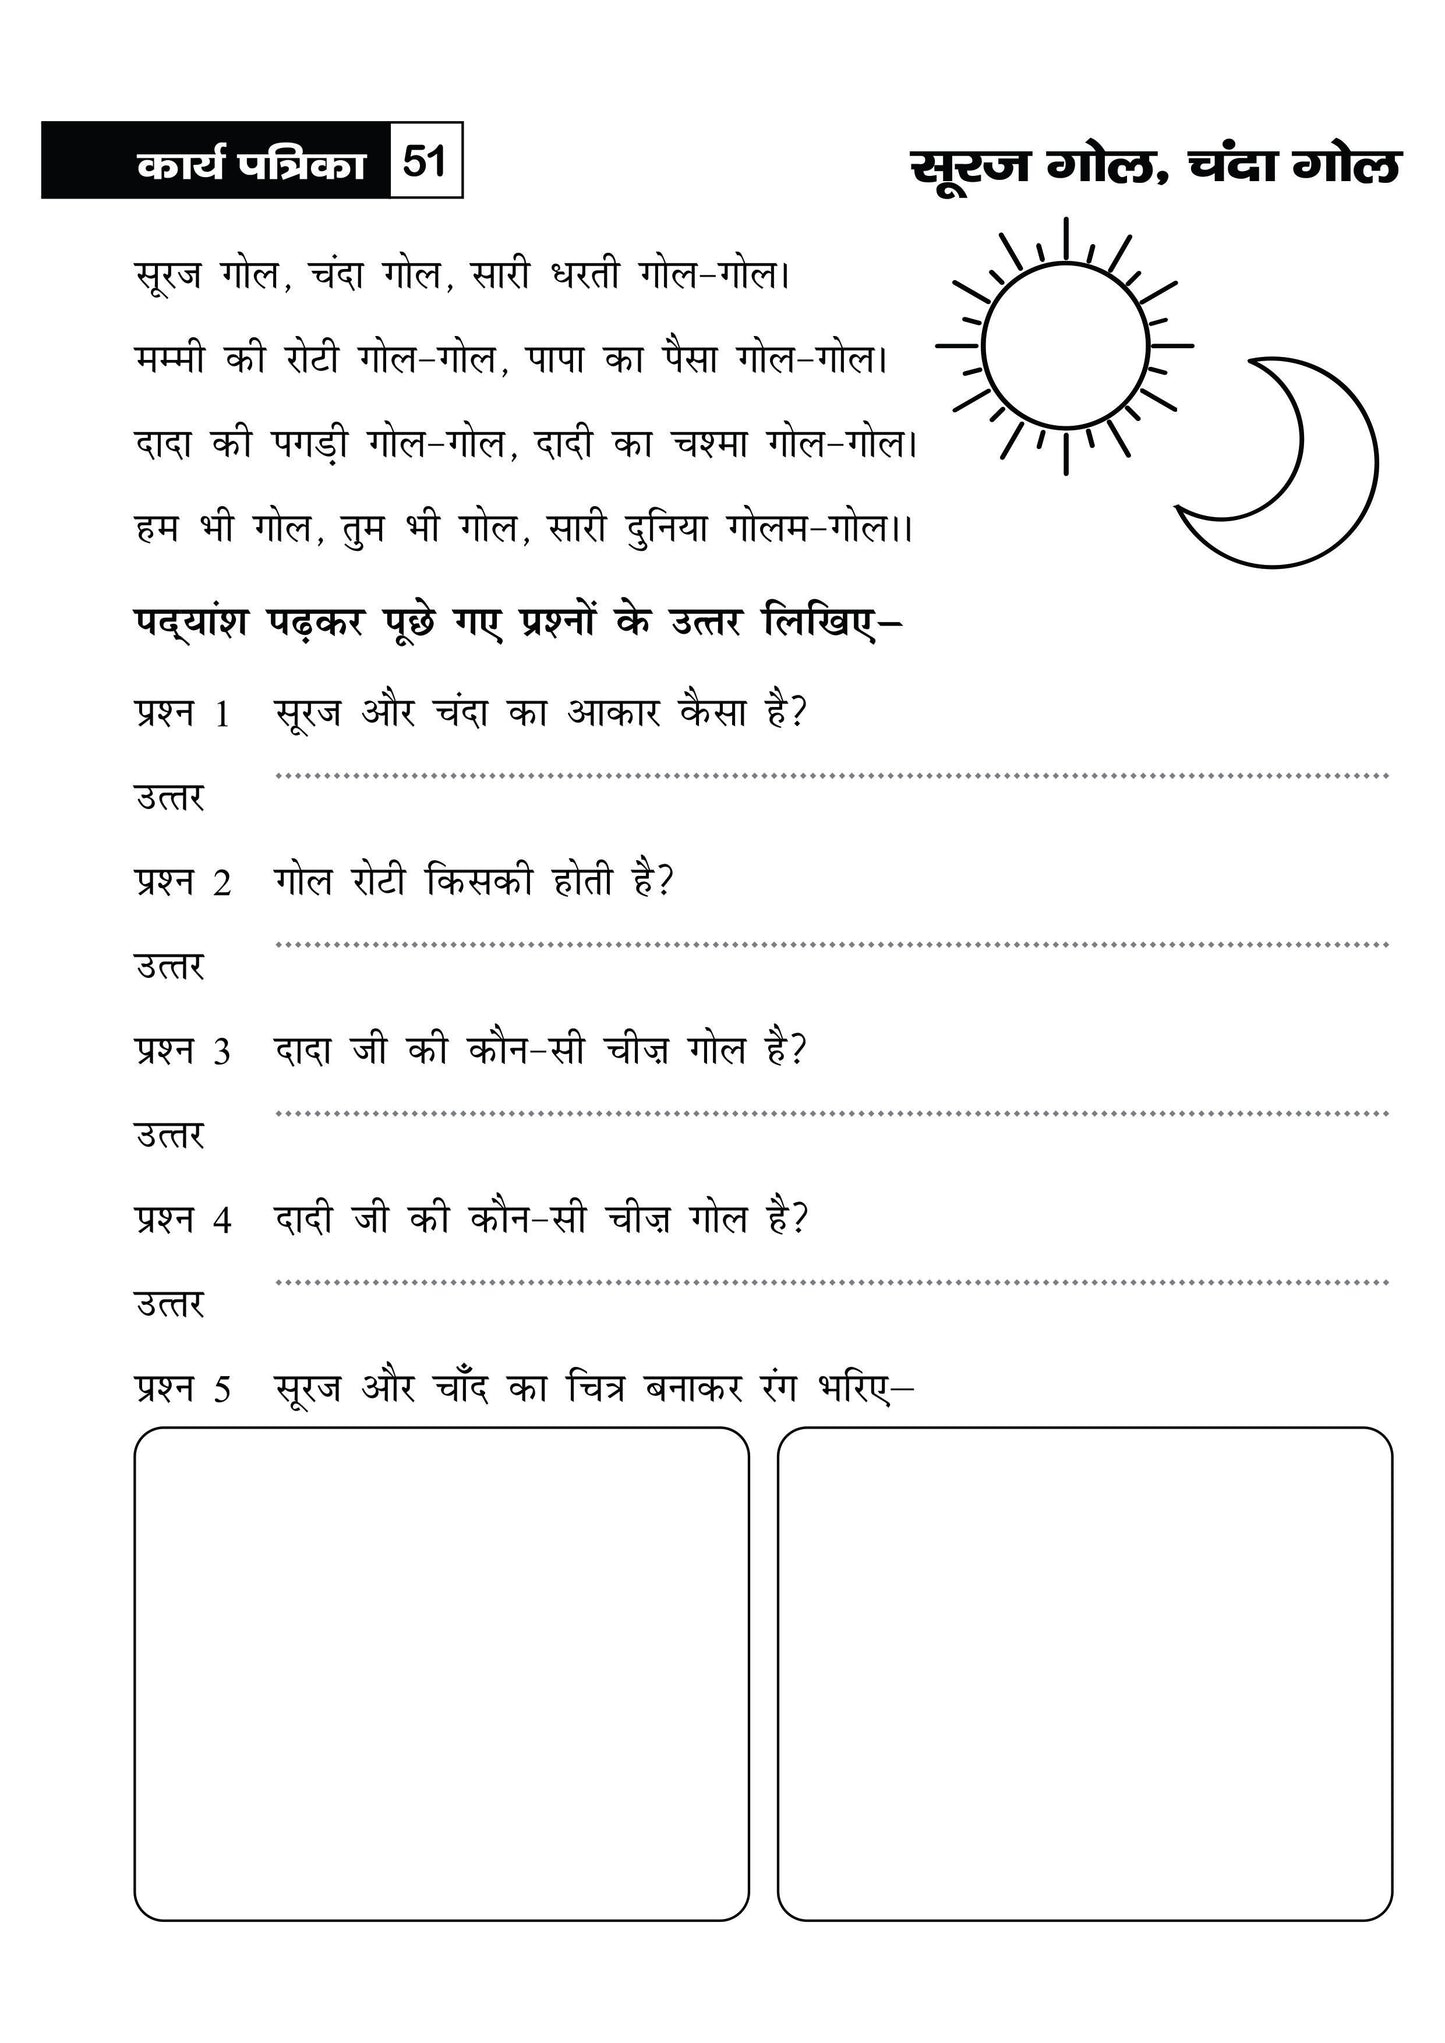 कार्य पत्रिका 51
सूरज गोल, चंदा गोल
सूरज गोल, चंदा गोल, सारी धरती गोल-गोल।
मम्मी की रोटी गोल-गोल, पापा का पैसा गोल-गोल।
दादा की पगड़ी गोल-गोल, दादी का चश्मा गोल-गोल।
हम भी गोल, तुम भी गोल, सारी दुनिया गोलम-गोल।।
पद्‌यांश पढ़कर पूछे गए प्रश्नों के उत्तर लिखिए–
प्रश्न 1 सूरज और चंदा का आकार कैसा है?
उत्तर
प्रश्न 2 गोल रोटी किसकी होती है?
उत्तर
प्रश्न 3 दादा जी की कौन-सी चीज़ गोल है?
उत्तर
प्रश्न 4 दादी जी की कौन-सी चीज़ गोल है?
उत्तर
प्रश्न 5 सूरज और चाँद का चित्र बनाकर रंग भरिए–